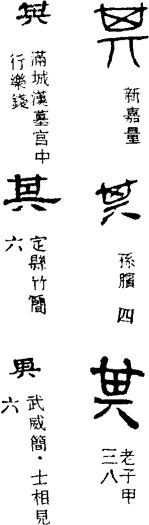 其
新嘉量
其
孫臏 四
其
老子甲
三八
其
滿城漢墓宮中
行樂錢
其
定縣竹簡
六
其
武威簡·士相見
六